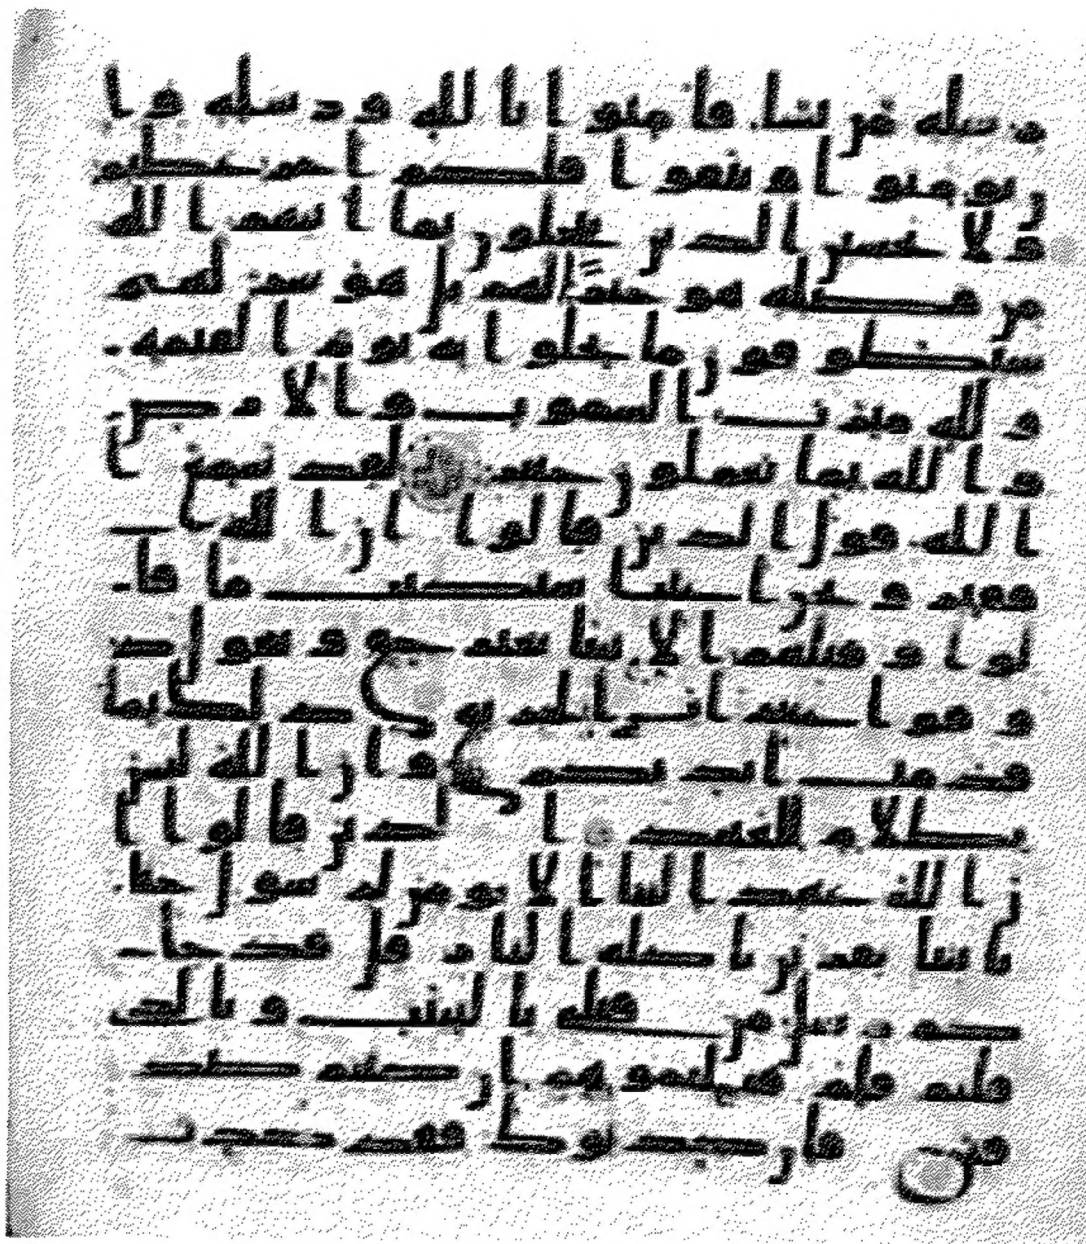 رسله من يشا فامنوا بالله ورسله وا
ن تومنوا وتتقوا فلكم اجر عظيم
ولا يحسبن الذين يبخلون بما اتيهم الله
من فضله هو خيرا لهم بل هو شر لهم
سيطوقون ما بخلوا به يوم القيمه
ولله ميرث السموت والارض
والله بما تعملون خبير لقد سمع
الله قول الذين قالوا ان الله
فقير ونحن اغنيا سنكتب ما قا
لوا وقتلهم الانبيا بغير حق ونقول
ذوقوا عذاب الحريق ذلك بما
قدمت ايديكم وان الله ليس
بظلام للعبيد الذين قالوا ا
ن الله عهد الينا الا نومن لرسول حتى
ياتينا بقربان تاكله النار قل قد جا
كم رسل من قبلي بالبينت وبالذي
قلتم فلم قتلتموهم ان كنتم صد
قين فان كذبوك فقد كذب